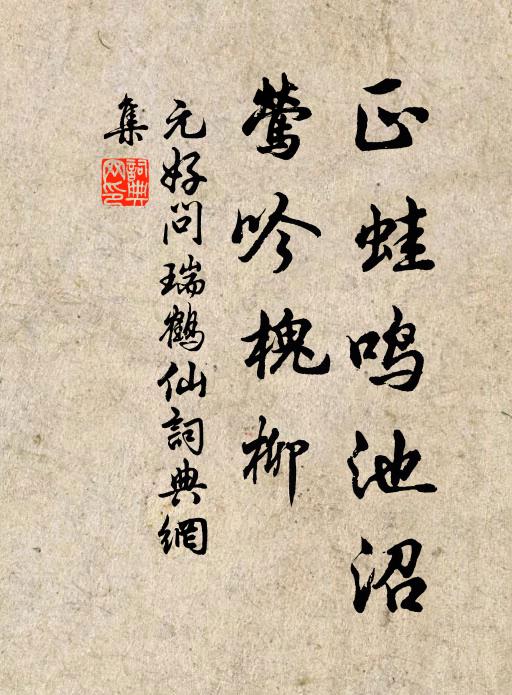 正蛙鸣池沼
莺吟槐柳
元好问瑞鹤仙詞典網
集
詞典网印